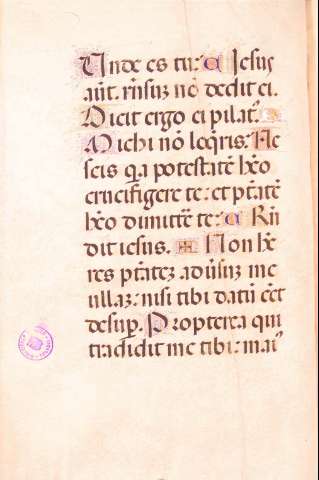 Unde es tu: C Jesus
aūt. rn̄suz nō dedit ei.
Dicit ergo ei pilat᷒.
Michi nō loq̄ris: Ne
scis q̄a potestatē hēo
crucifigere te: et pt̄atē
hēo dimittē te: C Rn̄
dit iesus. ✠ Non hē
res pt̄atez adūsuz me
ullaz: nisi tibi datū eēt
desuꝑ. Propterea qui
tradidit me tibi: mai᷒